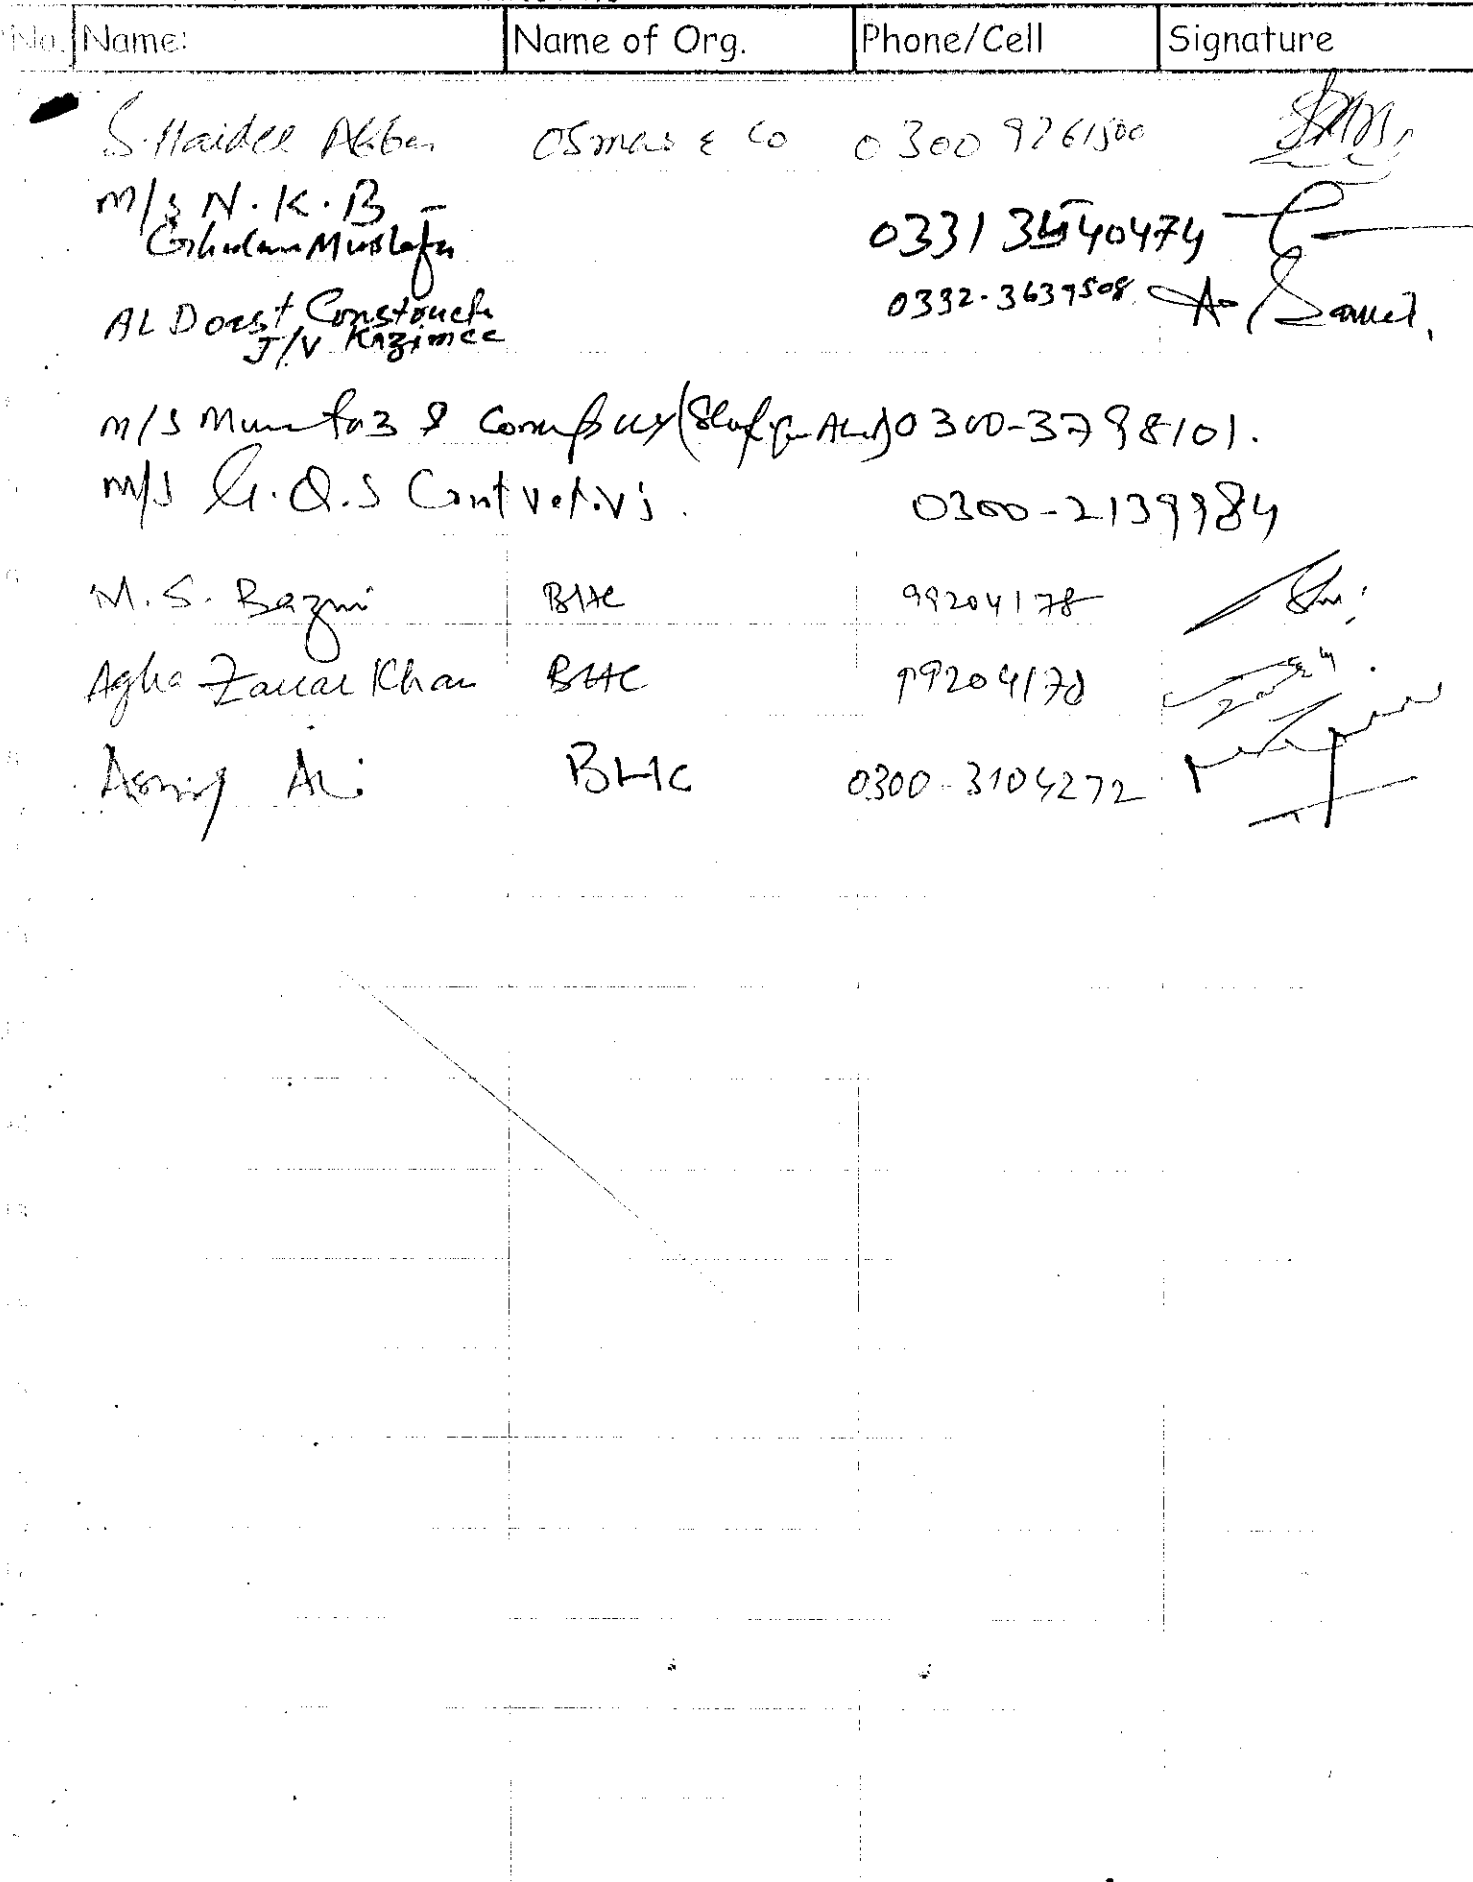 No. Name: Name of Org. Phone/Cell Signature
S. Haider Akbar Osman & Co 0300 9261500
M/S N.K.B
Ghulam Mustafa 0331 3540474
AL Doast Constouch 0332-3639508
J/V Kazimee
M/S Mumtaz & Company (Shafique Ahmed) 0300-3798101.
M/S G.Q.S 0300-2139984
M.S. Bazmi BHC 99204178
Agha Zawar Khan BHC 99204178
Ali BHC 0300-3104272